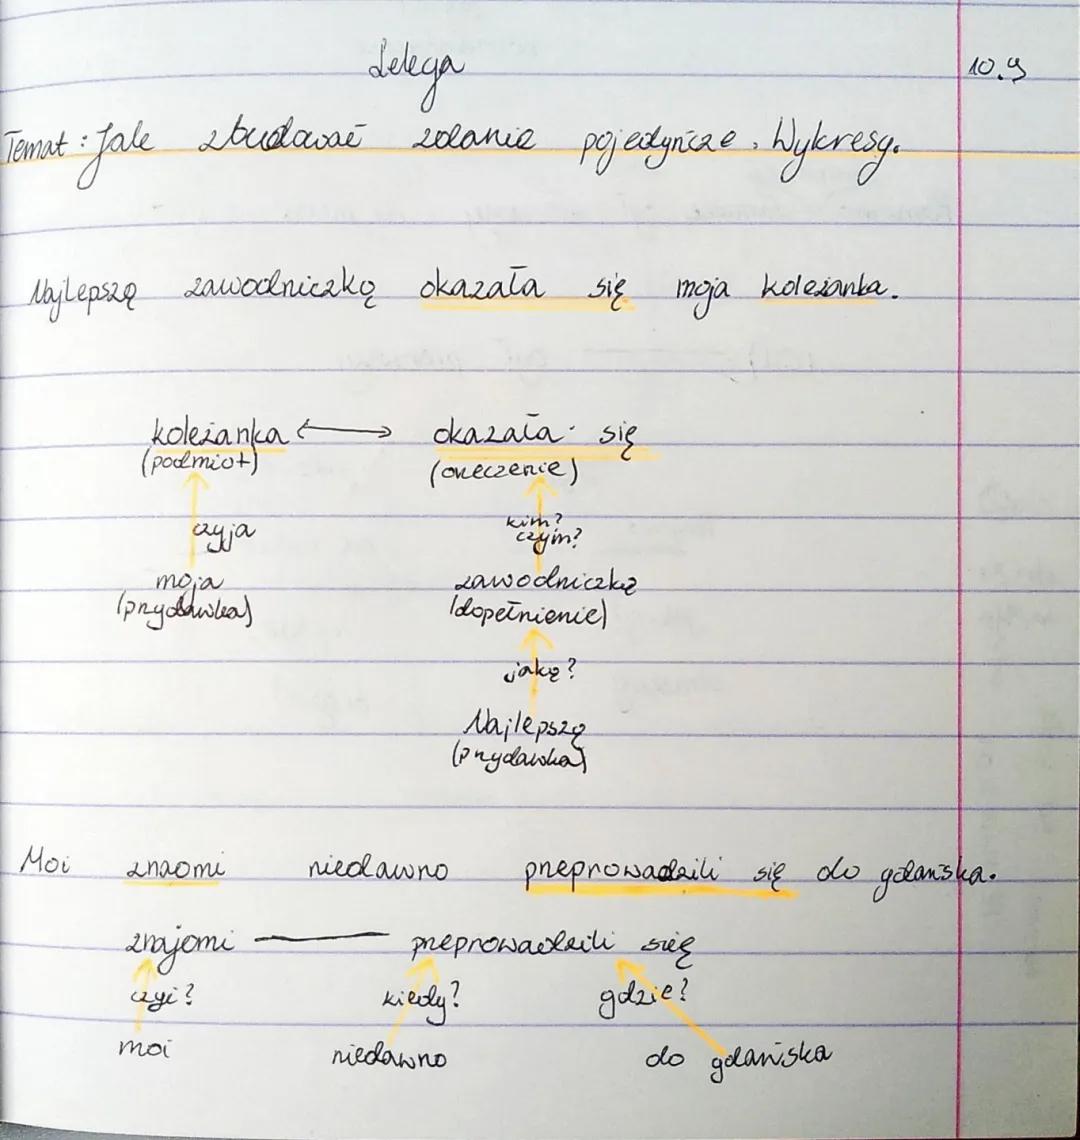 Lekcja
10.9
Temat: Jak zbudować zdanie pojedyńcze. Wykresy.
Najlepszą zawodniczką okazała się moja koleżanka.
koleżanka ↔ okazała się
(podmiot) (orzeczenie)
czyja kim?
czym?
moja zawodniczką
(przydawka) (dopełnienie)
jaką?
Najlepszą
(przydawka)
Moi znaomi niedawno przeprowadzili się do gdańska.
znajomi — przeprowadzili się
czyi? kiedy? gdzie?
moi niedawno do gdańska